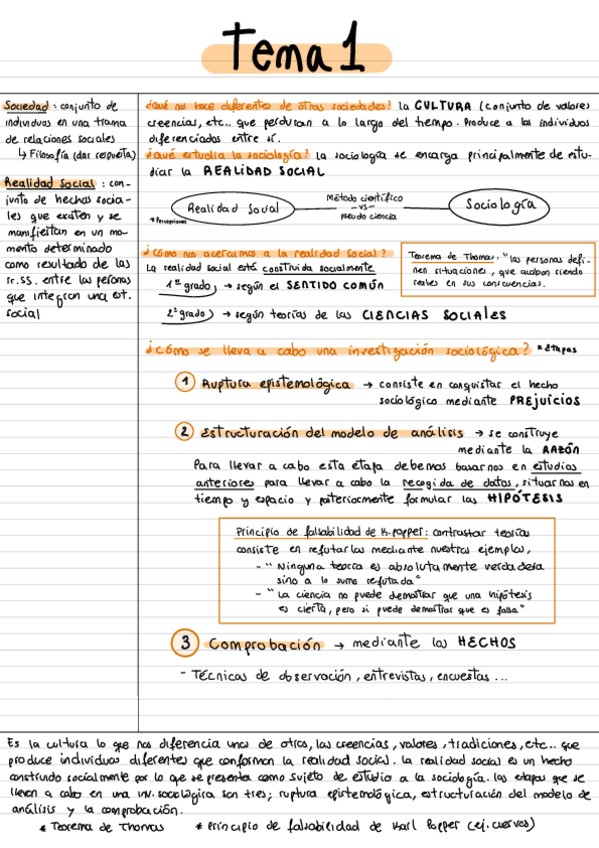 Tema 1
Sociedad : conjunto de
individuos en una trama
de relaciones sociales
↳ Filosofía (dar respuesta)
Realidad Social : con-
junto de hechos socia-
les que existen y se
manifiestan en un mo-
mento determinado
como resultado de las
rr.SS. entre las personas
que integran una est.
social
¿Qué nos hace diferentes de otras sociedades? la CULTURA (conjunto de valores
creencias, etc.. que perduran a lo largo del tiempo. Produce a los individuos
diferenciados entre sí.
¿Qué estudia la sociología? la sociología se encarga principalmente de estu-
diar la REALIDAD SOCIAL
Realidad Social
* Percepciones
Método científico
-vs-
pseudo ciencia
Sociología
¿Cómo nos acercamos a la realidad social?
La realidad social está construida socialmente
1er grado → según el SENTIDO COMÚN
2º grado → según teorías de las CIENCIAS SOCIALES
Teorema de Thomas: "las personas defi-
nen situaciones, que acaban siendo
reales en sus consecuencias.
¿Cómo se lleva a cabo una investigación sociológica? * Etapas
1 Ruptura epistemológica → consiste en conquistar el hecho
sociológico mediante PREJUICIOS
2 Estructuración del modelo de análisis → se construye
mediante la RAZÓN
Para llevar a cabo esta etapa debemos basarnos en estudios
anteriores para llevar a cabo la recogida de datos, situarnos en
tiempo y espacio y posteriormente formular las HIPÓTESIS
Principio de falsabilidad de K.Popper: contrastar teorías
consiste en refutarlas mediante nuestros ejemplos,
- " Ninguna teoría es absolutamente verdadera
sino a lo sumo refutada"
- " La ciencia no puede demostrar que una hipótesis
es cierta, pero si puede demostrar que es falsa"
3 Comprobación → mediante los HECHOS
- Técnicas de observación, entrevistas, encuestas ...
Es la cultura lo que nos diferencia unos de otros, las creencias, valores, tradiciones, etc... que
produce individuos diferentes que conforman la realidad social. La realidad social es un hecho
construido socialmente por lo que se presenta como sujeto de estudio a la sociología. las etapas que se
lleven a cabo en una inv. sociológica son tres; ruptura epistemológica, estructuración del modelo de
análisis y la comprobación.
* Teorema de Thomas * Principio de falsabilidad de Karl Popper (ej. cuervos)